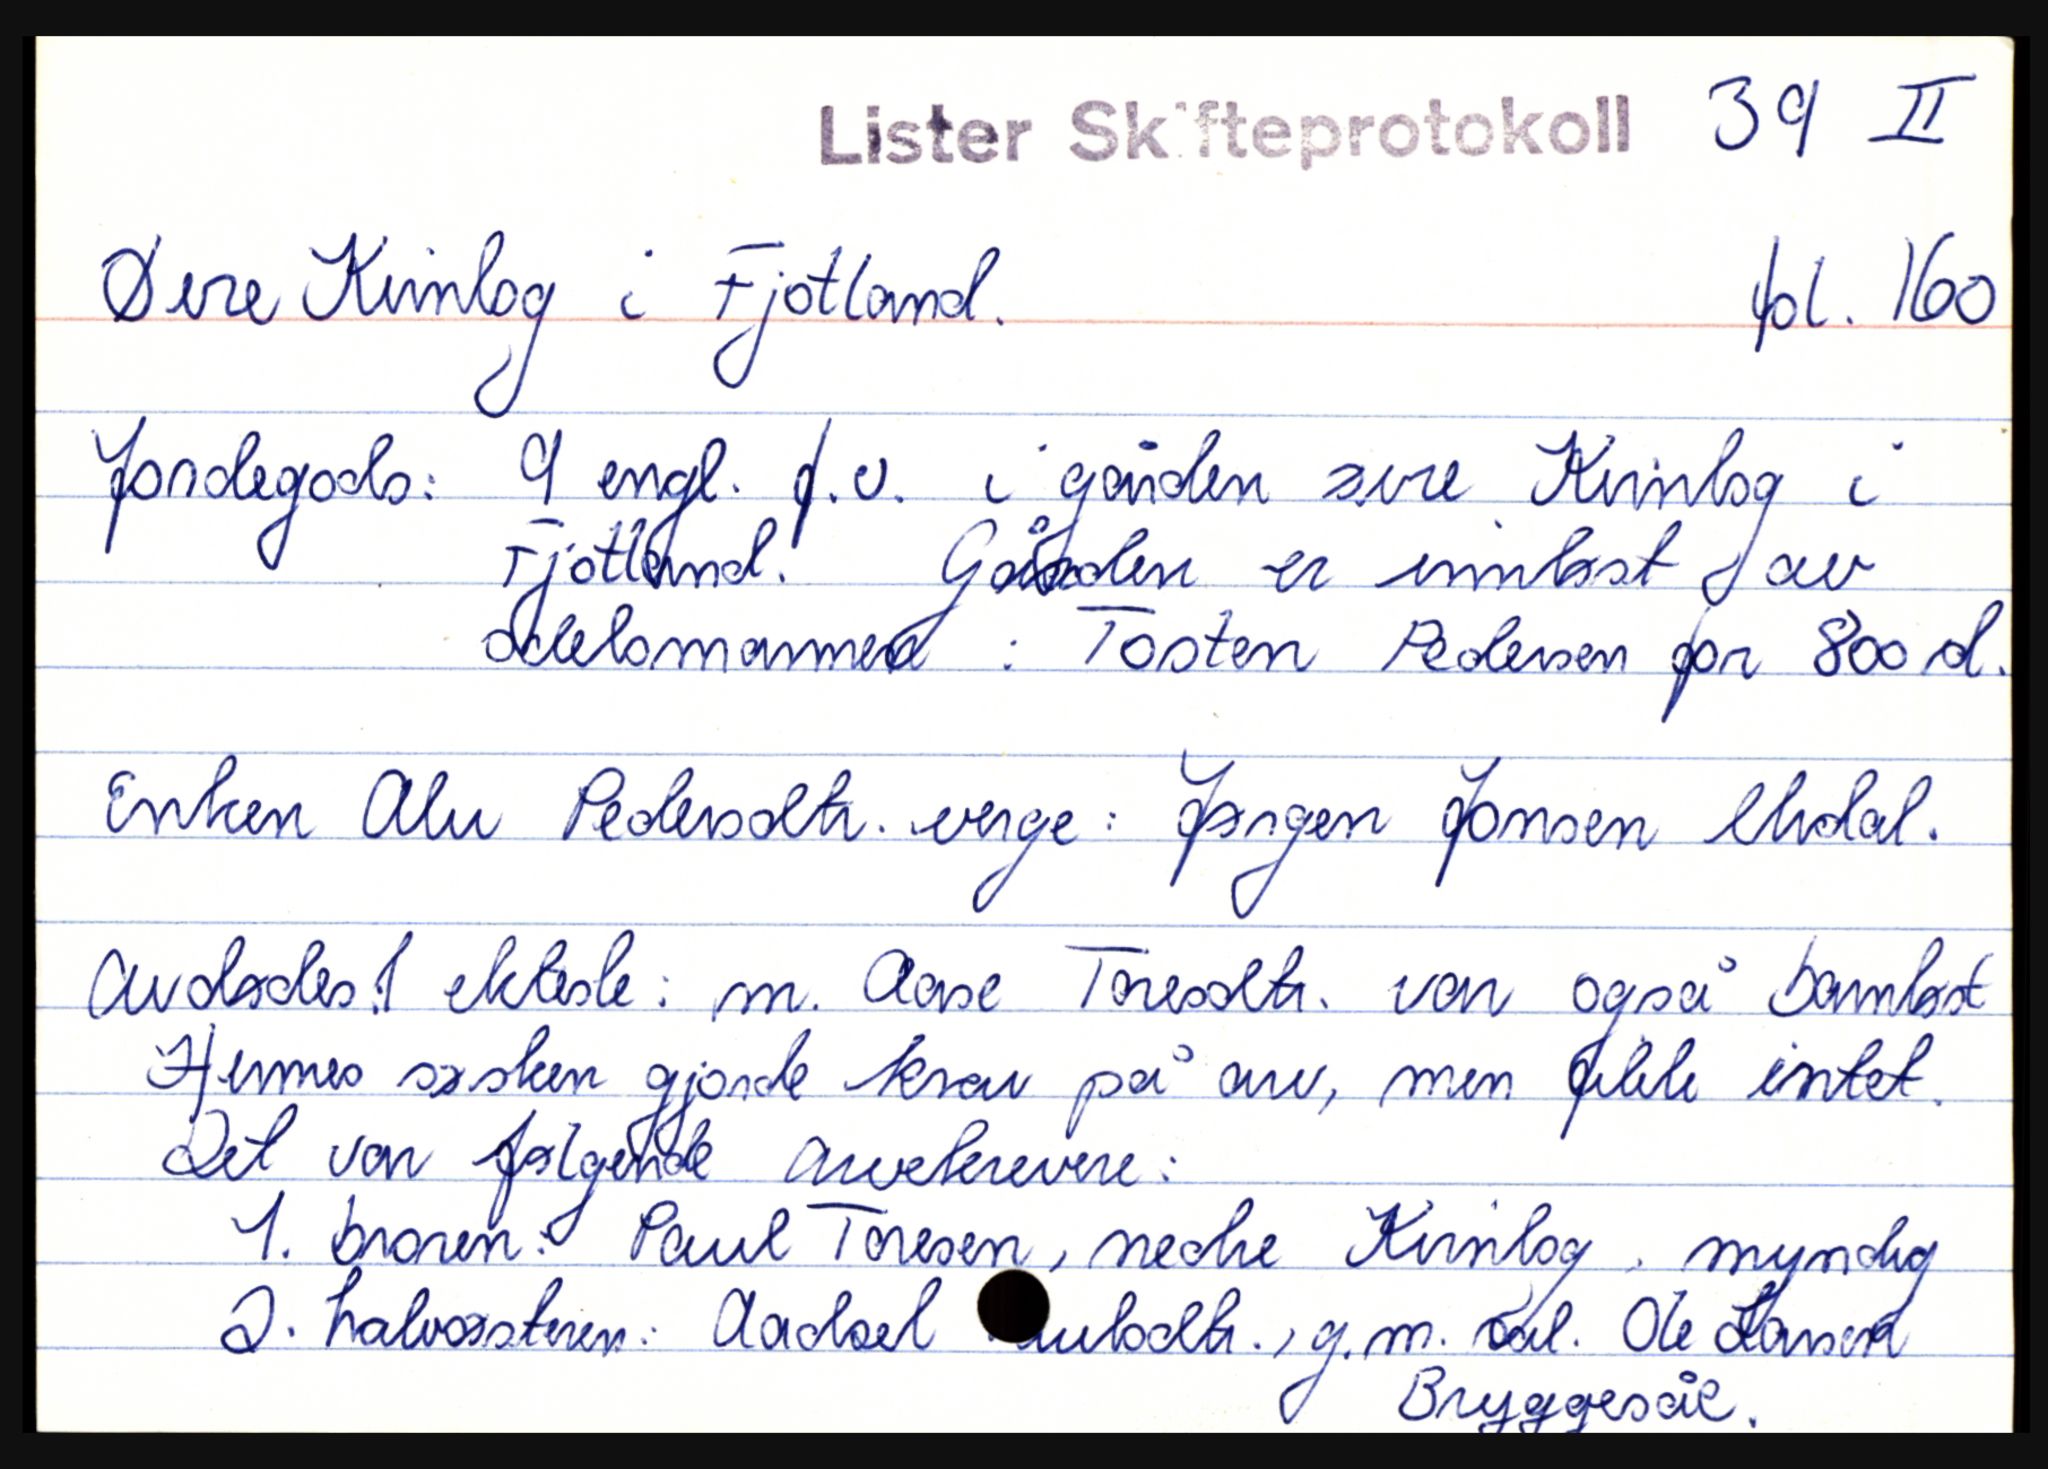 Lister Skifteprotokoll 39 II
Øvre Kvinlog i Fjotland. fol. 160
Jordegods: 9 engl. f.v. i gården øvre Kvinlog i
Fjotland. Gården er innløst av
odelsmannen : Tosten Pedersen for 800 d.
Enken Alu Pedersdtr. verge: Jørgen Jonsen Øvdal.
Avdødes 1 ektesk: m. Aase Toresdtr. var også barnløst
Hennes søsken gjorde krav på arv, men fikk intet.
Det var følgende arvekrevere:
1. broren: Paul Toresen, nedre Kvinlog, myndig
2. halvsøsteren: Aadsel aulsdtr., g.m. sal. Ole Larsen
Bryggesåk.